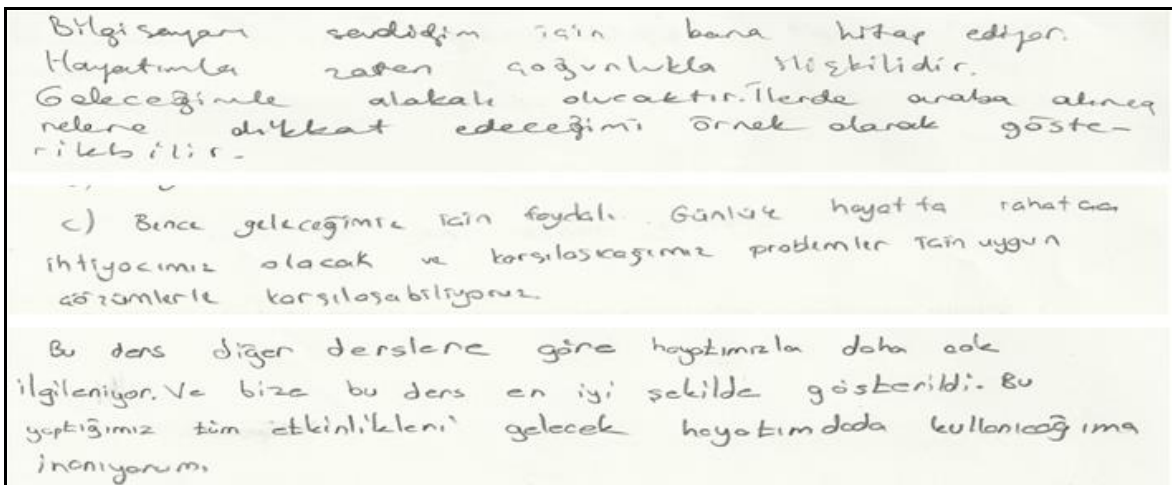 Bilgisayarı sevdiğim için bana hitap ediyor.
Hayatımla zaten çoğunlukla ilişkilidir.
Geleceğimle alakalı olucaktır. İlerde araba alınca
nelere dikkat edeceğimi örnek olarak göste-
rilebilir.
c) Bence geleceğimiz için faydalı. Günlük hayatta rahatça
ihtiyacımız olacak ve karşılaşıcağımız problemler için uygun
çözümlerle karşılaşabiliyoruz.
Bu ders diğer derslere göre hayatımızla daha çok
ilgileniyor. Ve bize bu ders en iyi şekilde gösterildi. Bu
yaptığımız tüm etkinlikleri gelecek hayatımdada kullanıcağıma
inanıyorum.